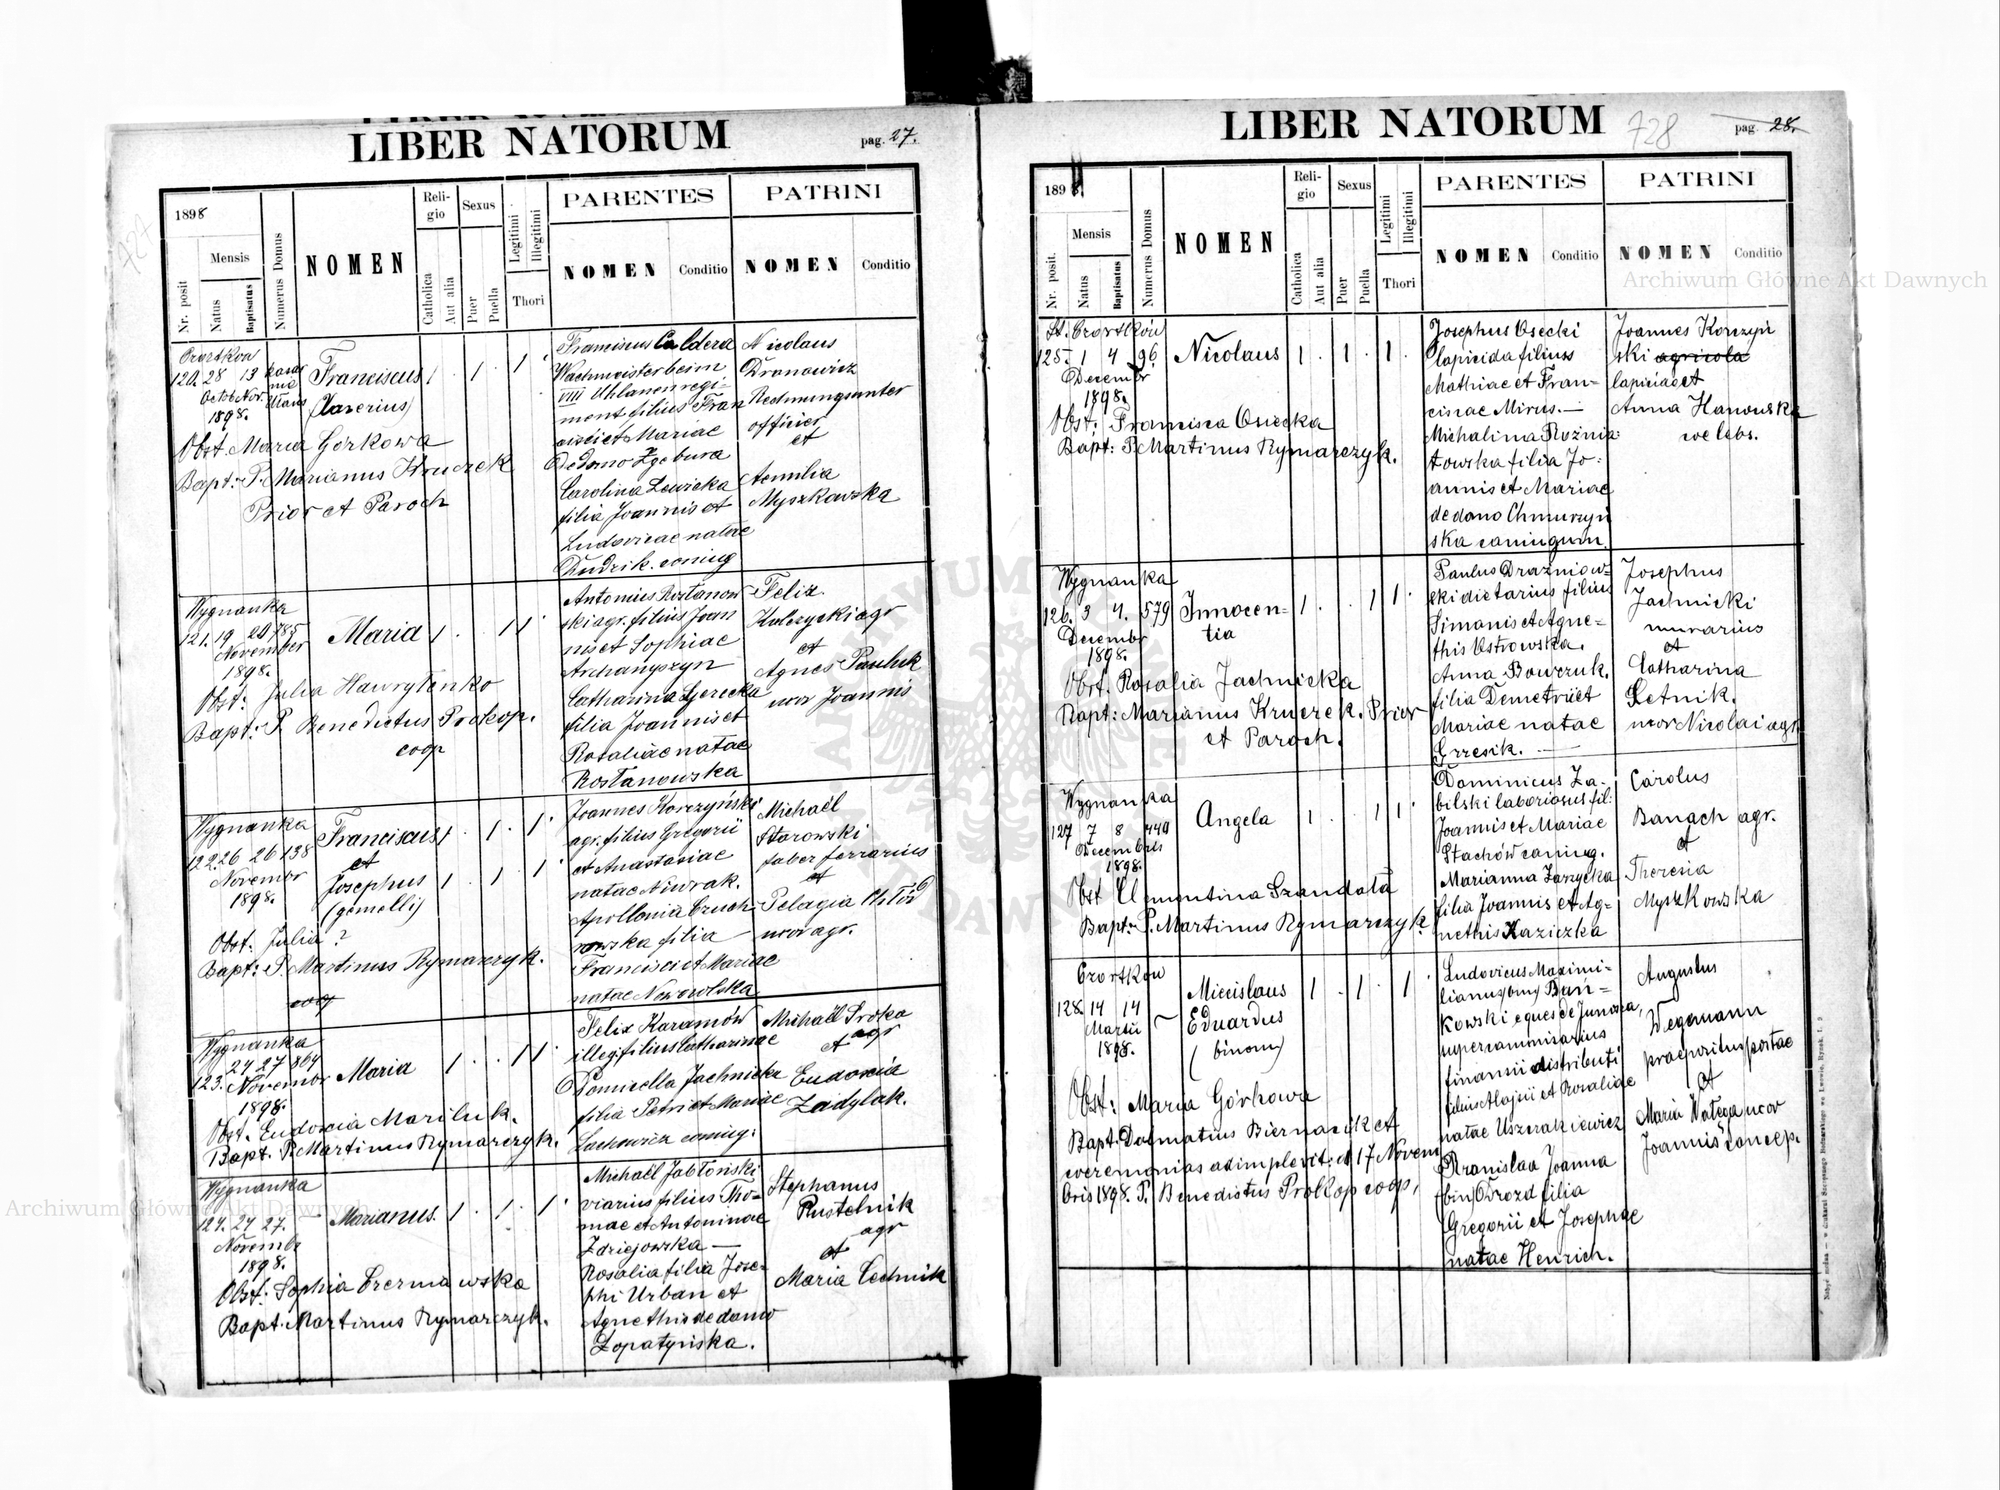 LIBER NATORUM
pag. 27.
1898
Mensis
Nr. posit
Natus
Baptisatus
Numerus Domus
NOMEN
Religio
Catholica
Aut alia
Sexus
Puer
Puella
Legitimi
Illegitimi
Thori
PARENTES
NOMEN
Conditio
PATRINI
NOMEN
Conditio
120. 28 13
1898.
Franciscus
(Xaverius)
Obst. Maria Gorkowa
Bapt. P. Marianus Kruczek
Prior et Paroch
Franciscus Caldera
Wachmeister beim
VIII Uhlanenregi-
ment filius Fran
cisci et Mariae
Carolina Lewicka
filia Joannis et
Ludovicae natae
Dudzik. coniug
Nicolaus
Dronowicz
Rechnungsunter
officier
et
Aemilia
Myszkowska
Wygnanka
121. 19 20 785
November
1898.
Maria
Obst: Julia Hawrylenko
Bapt: P. Benedictus Prokop.
coop
Antonius Rostanow
ski agr. filius Joan
nis et Sophiae
Archanyszyn
Catharina Gerecka
filia Joannis et
Rosaliae natae
Rostanowska
Felix
Kulczycki agr
et
Agnes Pauluk
uxor Joannis
Wygnanka
122. 26 26 138
Novembr
1898.
Franciscus
et
Josephus
(gemelli)
Obst: Julia ?
Bapt: P. Martinus Rymarczyk.
coop
Joannes Korczyński
agr. filius Gregorii
et Anastasiae
natae Niurak.
Apollonia Czuch
rowska filia
Francisci et Mariae
natae Nowowolska
Michaël
Starowski
faber ferrarius
et
Pelagia
uxor agr.
Wygnanka
24 27 864
123. Novembr
1898.
Maria
Obst. Eudoxia Mariluk.
Bapt. P. Martinus Rymarczyk.
Felix Karamów
illeg. filius Catharinae
Domicella Jachnicka
filia Petri et Mariae
Lachowicz coniug:
Michaël Sroka
et agr
Eudoxia
Zadylak.
Wygnanka
124. 24 27. —
Novembr
1898.
Marianus.
Obst: Sophia Czerniawska
Bapt. Martinus Rymarczyk.
Michaël Jabłoński
viarius filius Tho-
mae et Antoninae
Zdziejowska —
Rosalia filia Jose-
phi Urban et
Agnethis de domo
Łopatyńska.
Stephanus
Pustelnik
agr
et
Maria Cechnik
LIBER NATORUM
728
pag. 28.
1898.
Mensis
Nr. posit.
Natus
Baptisatus
Numerus Domus
NOMEN
Religio
Catholica
Aut alia
Sexus
Puer
Puella
Legitimi
Illegitimi
Thori
PARENTES
NOMEN
Conditio
PATRINI
NOMEN
Conditio
St. Czortków
125. 1 4 96
Decembr
1898.
Nicolaus
Obst. Francisca Osiecka
Bapt: P. Martinus Rymarczyk.
Josephus Osecki
lapicida filius
Mathiae et Fran-
ciscae Mirus. —
Michalina Roźnia:
towska filia Jo:
annis et Mariae
de domo Chmurzyń
ska coniugum.
Joannes Korczyń
ski agricola
lapicida et
Anna Hanowska
coelebs.
Wygnanka
126. 3 4. 579
Decembr
1898.
Innocen-
tia
Obst. Rosalia Jachnicka
Bapt: Marianus Kruczek. Prior
et Paroch.
Paulus Drazniow-
ski dietarius filius
Simonis et Agne-
this Ostrowska.
Anna Bowczuk.
filia Demetrii et
Mariae natae
Grzesik. —
Josephus
Jachnicki
murarius
et
Catharina
Letnik.
uxor Nicolai agr.
Wygnanka
127 7 8 449
Decembris
1898.
Angela
Obst Clementina Szandała
Bapt: P. Martinus Rymarczyk.
Dominicus Za-
bilski laboriosus fil:
Joannis et Mariae
Stachów coniug.
Marianna Zarzycka
filia Joannis et Ag-
nethis Kaziczka
Carolus
Banach agr.
et
Theresia
Myszkowska
Czortków
128. 14 14 —
Martii
1898.
Miecislaus
Eduardus
(binom)
Obst: Maria Górkowa
Bapt: Dalmatius Biernacik et
ceremonias adimplevit: d 17 Novem
bris 1898. P. Benedictus Prokop coop,
Ludovicus Maximi-
lianus (bin) Ban-
kowski eques de Junosza,
supercommissarius
finansii districti
filius Aloysii et Rosaliae
natae Uszerakiewicz
Bronislaa Joanna
(bin) Drozd filia
Gregorii et Josephae
natae Henrich.
Augustus
Wegmann
praepositus postae
et
Maria Wałęga uxor
Joannis concep.
Archiwum Główne Akt Dawnych
Archiwum Główne Akt Dawnych